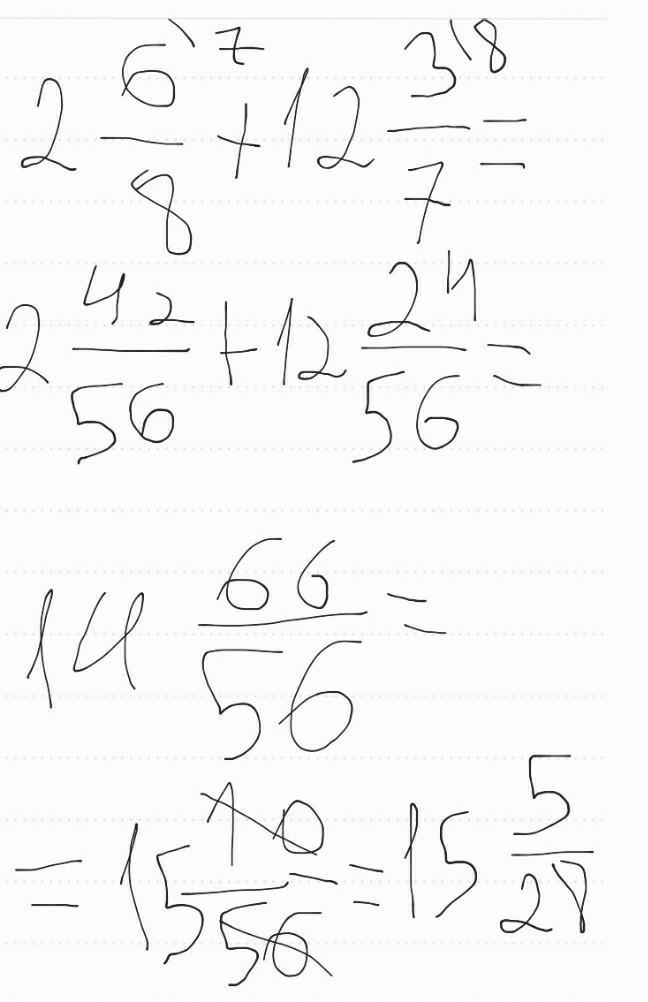 2 6\7/8 + 12 3\8/7 =
2 42/56 + 12 24/56 =
14 66/56 =
= 15 10/56 = 15 5/28